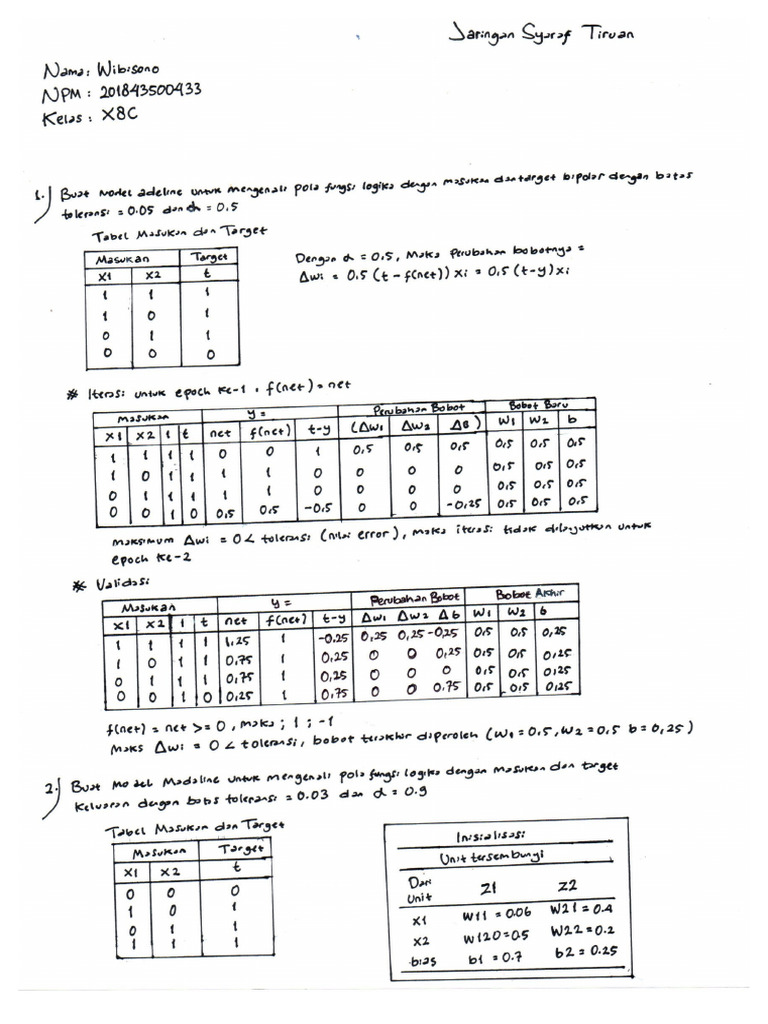 Jaringan Syaraf Tiruan
Nama: Wibisono
NPM : 201843500433
Kelas : X8C
1.) Buat Model adeline untuk mengenali pola fungsi logika dengan masukan dan target bipolar dengan batas
toleransi = 0.05 dan α = 0,5
Tabel Masukan dan Target
Masukan Target
X1 X2 t
1 1 1
1 0 1
0 1 1
0 0 0
Dengan α = 0,5, Maka Perubahan bobotnya =
Δwi = 0,5 (t - f(net)) xi = 0,5 (t-y) xi
* Iterasi untuk epoch ke-1, f(net) = net
Masukan y = Perubahan Bobot Bobot Baru
X1 X2 1 t net f(net) t-y (ΔW1 ΔW2 ΔB) W1 W2 b
1 1 1 1 0 0 1 0,5 0,5 0,5 0,5 0,5 0,5
1 0 1 1 1 1 0 0 0 0 0,5 0,5 0,5
0 1 1 1 1 1 0 0 0 0 0,5 0,5 0,5
0 0 1 0 0,5 0,5 -0,5 0 0 -0,25 0,5 0,5 0,5
maksimum Δwi = 0 < toleransi (nilai error), maka iterasi tidak dilanjutkan untuk
epoch ke-2
* Validasi
Masukan y = Perubahan Bobot Bobot Akhir
X1 X2 1 t net f(net) t-y ΔW1 ΔW2 Δb W1 W2 b
1 1 1 1 1,25 1 -0,25 0,25 0,25 -0,25 0,5 0,5 0,25
1 0 1 1 0,75 1 0,25 0 0 0,25 0,5 0,5 0,25
0 1 1 1 0,75 1 0,25 0 0 0 0,5 0,5 0,25
0 0 1 0 0,25 1 0,75 0 0 0,75 0,5 0,5 0,25
f(net) = net >= 0, maka ; 1 ; -1
Maks Δwi = 0 < toleransi, bobot terakhir diperoleh (W1 = 0,5, W2 = 0,5 b = 0,25)
2.) Buat Model Madaline untuk mengenali pola fungsi logika dengan masukan dan target
Keluaran dengan batas toleransi = 0.03 dan α = 0.9
Tabel Masukan dan Target
Masukan Target
X1 X2 t
0 0 0
1 0 1
0 1 1
1 1 1
Inisialisasi
Unit tersembunyi
Dari Unit Z1 Z2
X1 W11 = 0.06 W21 = 0.4
X2 W120=05 W22 = 0.2
bias b1 = 0.7 b2 = 0.25